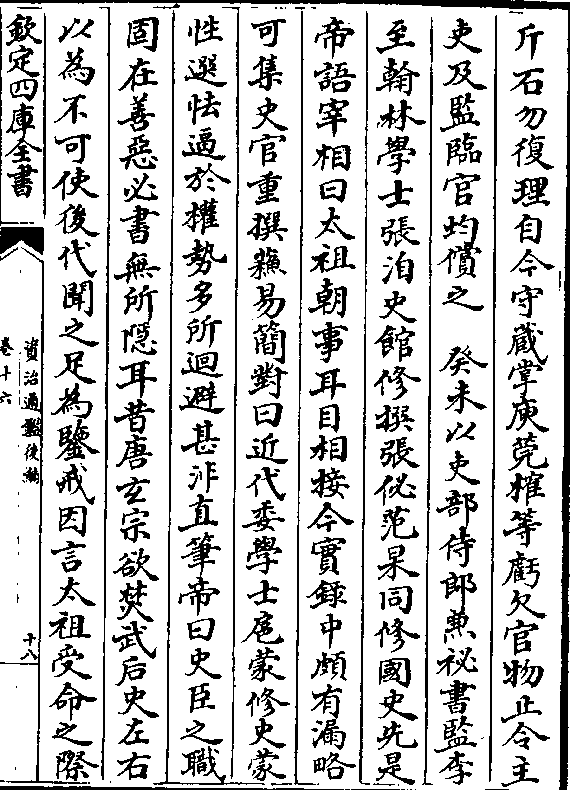 斤石勿復理自今守蔵掌庾筦榷等虧欠官物止令主
吏及監臨官均償之　癸未以吏部侍郎兼祕書監李
至翰林學士張洎史館修撰張佖范杲同修國史先是
帝語宰相曰太祖朝事耳目相接今實録中頗有漏略
可集史官重撰蘓易簡對曰近代委學士扈蒙修史蒙
性選怯逼於權勢多所迴避甚非直筆帝曰史臣之職
固在善惡必書無所隱耳昔唐玄宗欲焚武后史左右
以為不可使後代聞之足為鑒戒因言太祖受命之際
欽定四庫全書
資治通鑑後編
卷十六
十八